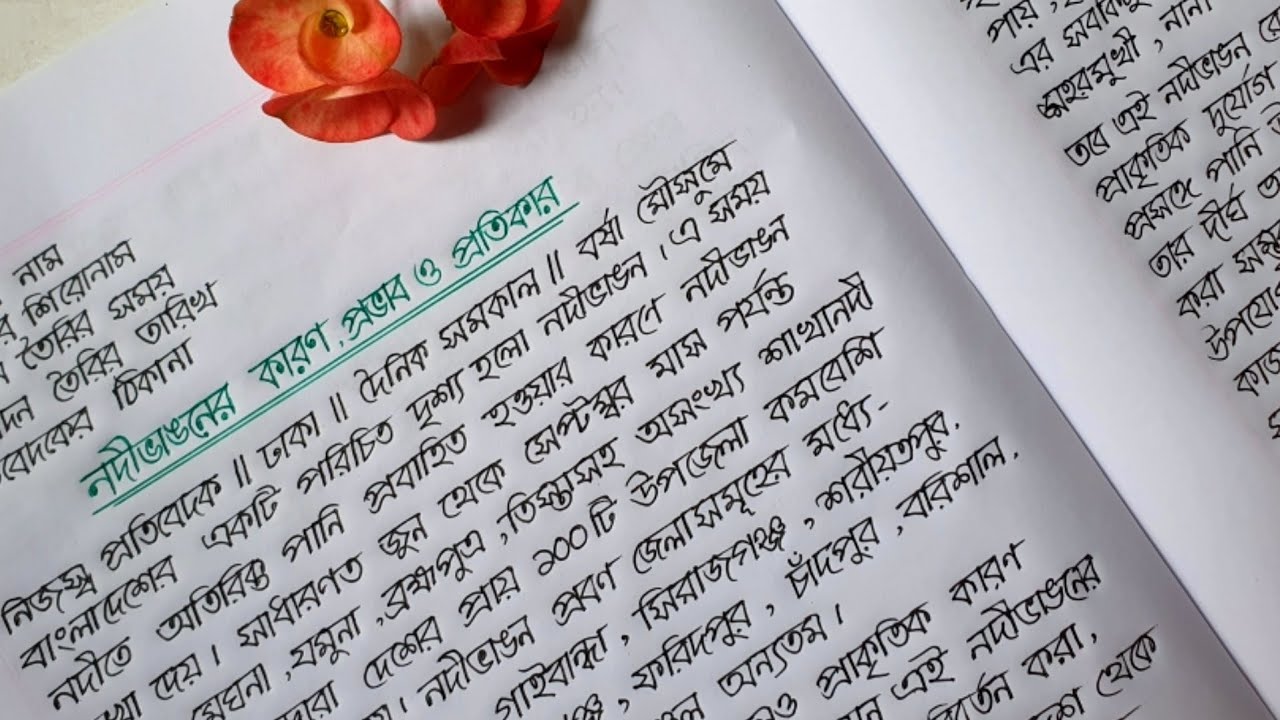 নাম
শিরোনাম
তৈরির সময়
তৈরির তারিখ
ঠিকানা
নদীভাঙনের কারণ, প্রভাব ও প্রতিকার
নিজস্ব প্রতিবেদক || ঢাকা || দৈনিক সমকাল || বর্ষা মৌসুমে
বাংলাদেশের একটি পরিচিত দৃশ্য হলো নদীভাঙন। এ সময়
নদীতে অতিরিক্ত পানি প্রবাহিত হওয়ার কারণে নদীভাঙন
দেয়। সাধারণত জুন থেকে সেপ্টেম্বর মাস পর্যন্ত
মেঘনা, যমুনা, ব্রহ্মপুত্র, তিস্তাসহ অসংখ্য শাখানদী
দেশের প্রায় ১০০টি উপজেলা কমবেশি
নদীভাঙন প্রবণ জেলাসমূহের মধ্যে-
গাইবান্ধা, সিরাজগঞ্জ, শরীয়তপুর,
ফরিদপুর, চাঁদপুর, বরিশাল,
অন্যতম।
প্রাকৃতিক কারণ
এই নদীভাঙনের
করা,
থেকে
পায়,
এর
নানা
তবে এই নদীভাঙন
প্রাকৃতিক দুর্যোগ
প্রসঙ্গে পানি
তার দীর্ঘ
করা